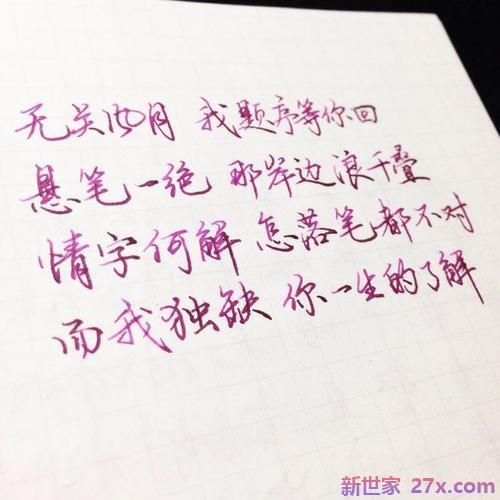 无关风月 我题序等你回
悬笔一绝 那岸边浪千叠
情字何解 怎落笔都不对
而我独缺 你一生的了解
新世家 27x.com